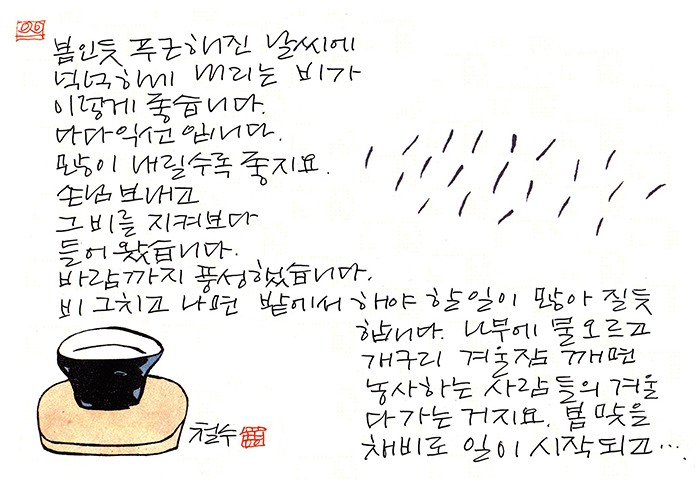 06
봄인듯 푸근해진 날씨에
넉넉하게 내리는 비가
이렇게 좋습니다.
다다익선 입니다.
많이 내릴수록 좋지요.
손님 보내고
그 비를 지켜보다
들어 왔습니다.
바람까지 풍성했습니다.
비 그치고 나면 밭에서 해야 할일이 많아 질듯
합니다. 나무에 물오르고
개구리 겨울잠 깨면
농사하는 사람들의 겨울
다 가는 거지요. 봄 맞을
채비로 일이 시작되고…
철수